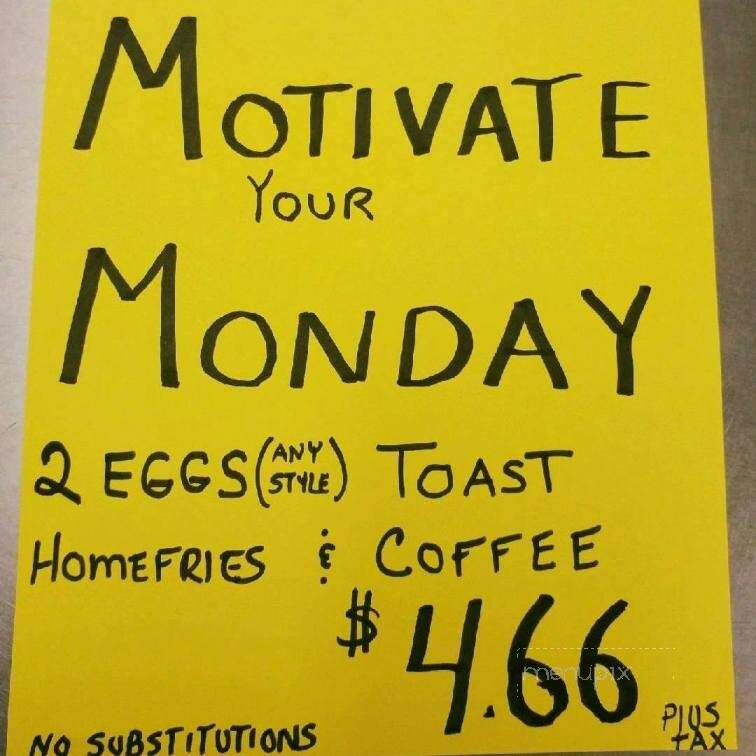 MOTIVATE
YOUR
MONDAY
2 EGGS (ANY STYLE) TOAST
HOMEFRIES & COFFEE
$ 4.66
menupix
NO SUBSTITUTIONS
PLUS TAX